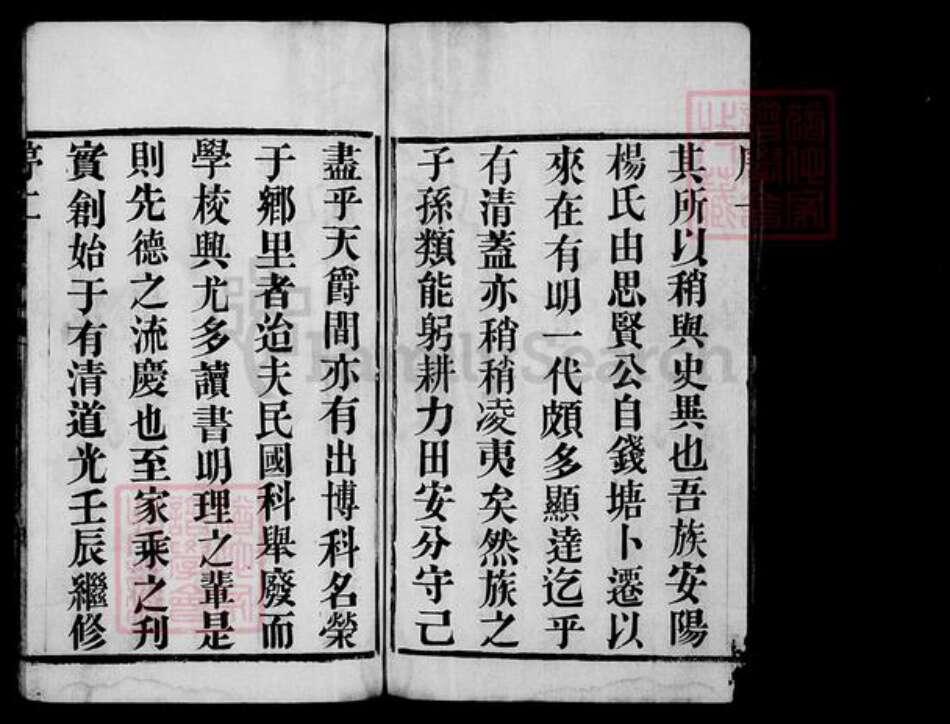 其所以稍與史異也吾族安陽
楊氏由思賢公自錢塘卜遷以
來在有明一代頗多顯達迄乎
有清蓋亦稍稍凌夷矣然族之
子孫類能躬耕力田安分守己
盡乎天爵間亦有出博科名榮
于鄉里者迨夫民國科舉廢而
學校興尤多讀書明理之輩是
則先德之流慶也至家乘之刊
實創始于有清道光壬辰繼修